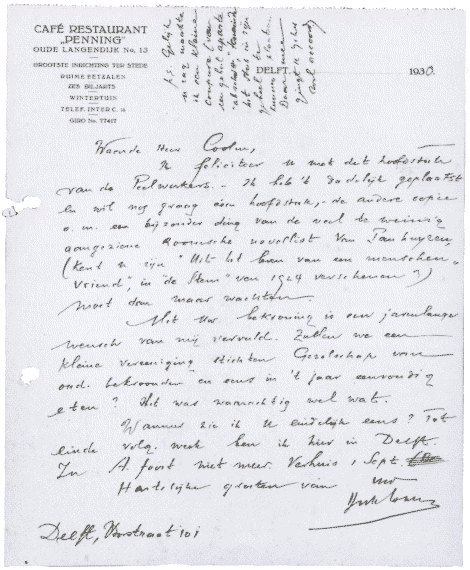 CAFÉ RESTAURANT
„PENNING"
OUDE LANGENDIJK No. 13
GROOTSTE INRICHTING TER STEDE
RUIME EETZALEN
ZES BILJARTS
WINTERTUIN
TELEF. INTERC.
GIRO No. 77417
DELFT, 1930.
Waarde Heer Coolen,
Ik feliciteer U met dit hoofdstuk
van de Peelwerkers. - Ik heb 't dadelijk geplaatst
en wil nog graag één hoofdstuk, - de andere copie
o.m. een bijzonder ding van de veel te weinig
aangeziene Roomsche novellist Van Panhuyzen
(Kent u zijn "Uit het leven van een menschen-
vriend", in "de Stem" van 1924 verschenen?)
moet dan maar wachten.
Met Uw bekroning is een jarenlange
wensch van mij vervuld. Zullen we een
kleine vereeniging stichten Gezelschap van
oud. bekroonden en eens in 't jaar eenvoudig
eten? Het was waarachtig wel wat.
Wanneer zie ik U eindelijk eens? Tot
einde volg. week ben ik hier in Delft.
In A'foort niet meer. Verhuis 1 Sept.
Hartelijke groeten van
Delft, Voorstraat 101
P.S. Gelijk
u zag maakte
ik een kleine
een geheel aparte
het stuk in zijn
geheel te
Daarmee